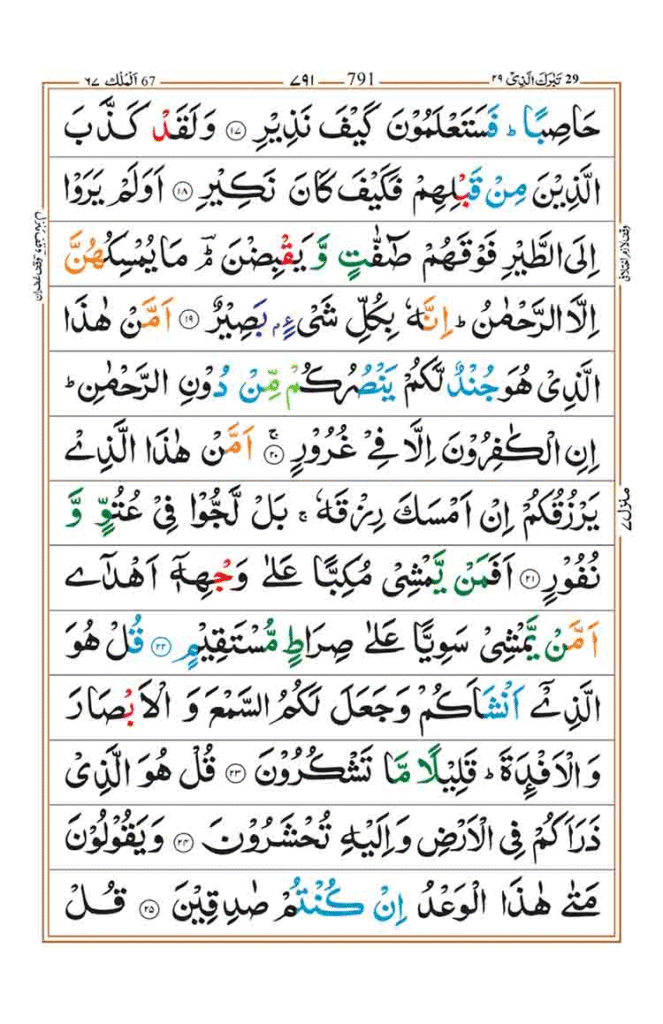 29 تَبٰرَكَ الَّذِىْ ٢٩ 791 ٧٩١ 67 اَلْمُلْك ٦٧
حَاصِبًا ؕ فَسَتَعْلَمُوْنَ كَيْفَ نَذِيْرِ ﴿١٧﴾ وَلَقَدْ كَذَّبَ
الَّذِيْنَ مِنْ قَبْلِهِمْ فَكَيْفَ كَانَ نَكِيْرِ ﴿١٨﴾ اَوَلَمْ يَرَوْا
اِلَى الطَّيْرِ فَوْقَهُمْ صٰٓفّٰتٍ وَّ يَقْبِضْنَ ؔۘ مَا يُمْسِكُهُنَّ
اِلَّا الرَّحْمٰنُ ؕ اِنَّهٗ بِكُلِّ شَىْءٍۢ بَصِيْرٌ ﴿١٩﴾ اَمَّنْ هٰذَا
الَّذِىْ هُوَ جُنْدٌ لَّكُمْ يَنْصُرُكُمْ مِّنْ دُوْنِ الرَّحْمٰنِ ؕ
اِنِ الْكٰفِرُوْنَ اِلَّا فِىْ غُرُوْرٍ ۚ﴿٢٠﴾ اَمَّنْ هٰذَا الَّذِىْ
يَرْزُقُكُمْ اِنْ اَمْسَكَ رِزْقَهٗ ۚ بَلْ لَّجُّوْا فِىْ عُتُوٍّ وَّ
نُفُوْرٍ ﴿٢١﴾ اَفَمَنْ يَّمْشِىْ مُكِبًّا عَلٰى وَجْهِهٖۤ اَهْدٰٓى
اَمَّنْ يَّمْشِىْ سَوِيًّا عَلٰى صِرَاطٍ مُّسْتَقِيْمٍ ﴿٢٢﴾ قُلْ هُوَ
الَّذِىْۤ اَنْشَاَكُمْ وَجَعَلَ لَكُمُ السَّمْعَ وَ الْاَبْصَارَ
وَالْاَفْـِٕدَةَ ؕ قَلِيْلًا مَّا تَشْكُرُوْنَ ﴿٢٣﴾ قُلْ هُوَ الَّذِىْ
ذَرَاَكُمْ فِى الْاَرْضِ وَاِلَيْهِ تُحْشَرُوْنَ ﴿٢٤﴾ وَيَقُوْلُوْنَ
مَتٰى هٰذَا الْوَعْدُ اِنْ كُنْتُمْ صٰدِقِيْنَ ﴿٢٥﴾ قُلْ
منزل ٧